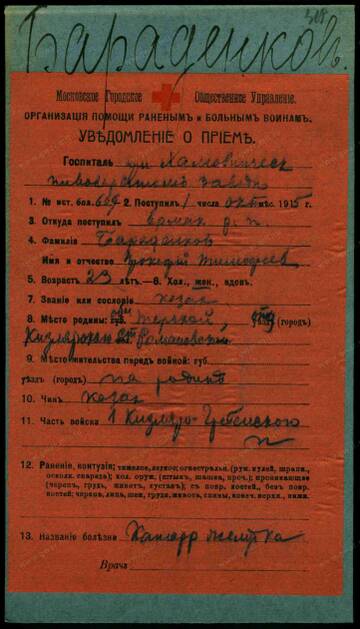 318
Бараденковъ.
Московское Городское Общественное Управленіе.
ОРГАНИЗАЦІЯ ПОМОЩИ РАНЕНЫМЪ и БОЛЬНЫМЪ ВОИНАМЪ.
УВѢДОМЛЕНІЕ О ПРІЕМѢ.
Госпиталь при Хамовническ
пивоваренномъ заводѣ
1. № ист. бол. 609 2. Поступилъ 1 числа окт. 1915 г.
3. Откуда поступилъ
4. Фамилія Бараденков
Имя и отчество Тимофеев
5. Возрастъ 23 лѣтъ.—6. Хол., жен., вдов.
7. Званіе или сословіе козак
8. Мѣсто родины: губ. Терской, уѣздъ (городъ)
Кизлярскаго
9. Мѣсто жительства передъ войной: губ.
уѣздъ (городъ) на родинѣ
10. Чинъ козак
11. Часть войска 1 Кизляро-Гребенского
п
12. Раненіе, контузія; тяжелое, легкое; огнестрѣльн. (руж. пулей, шрапн.,
осколк. снаряда); хол. оруж. (штыкъ, шашка, проч.); проникающее
(черепъ, грудь, животъ, суставъ); съ повр. костей, безъ повр.
костей; черепа, лица, шеи, груди, живота, спины, конеч. верхн., нижн.
13. Названіе болѣзни Катарр желудка
Врачъ